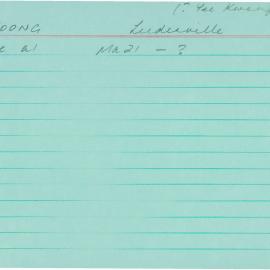 (? Yee Kwong
OONG Leederville
e at Ma21 - ?